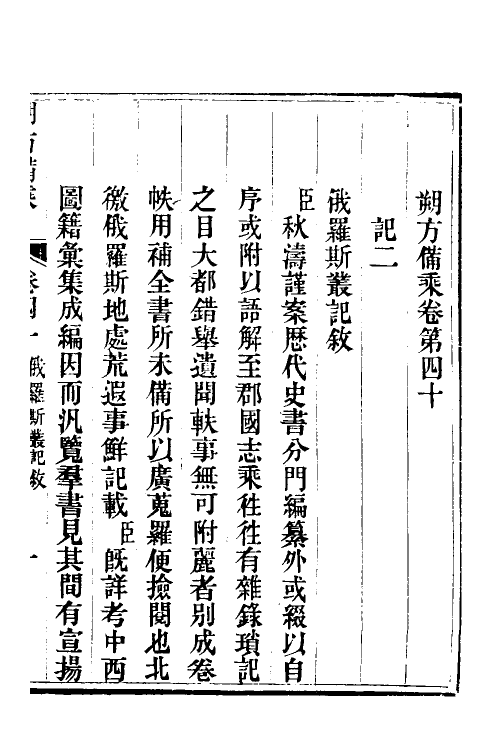 朔方備乘卷第四十
記二
俄羅斯叢記敘
臣秋濤謹案歷代史書分門編纂外或綴以自
序或附以語解至郡國志乘徃徃有雜錄瑣記
之目大都錯舉遺聞軼事無可附麗者別成卷
帙用補全書所未備所以廣蒐羅便撿閱也北
徼俄羅斯地處荒遐事鮮記載臣旣詳考中西
圖籍彙集成編因而汎覽羣書見其間有宣揚
朔方備乘 卷四十 俄羅斯叢記敘 一